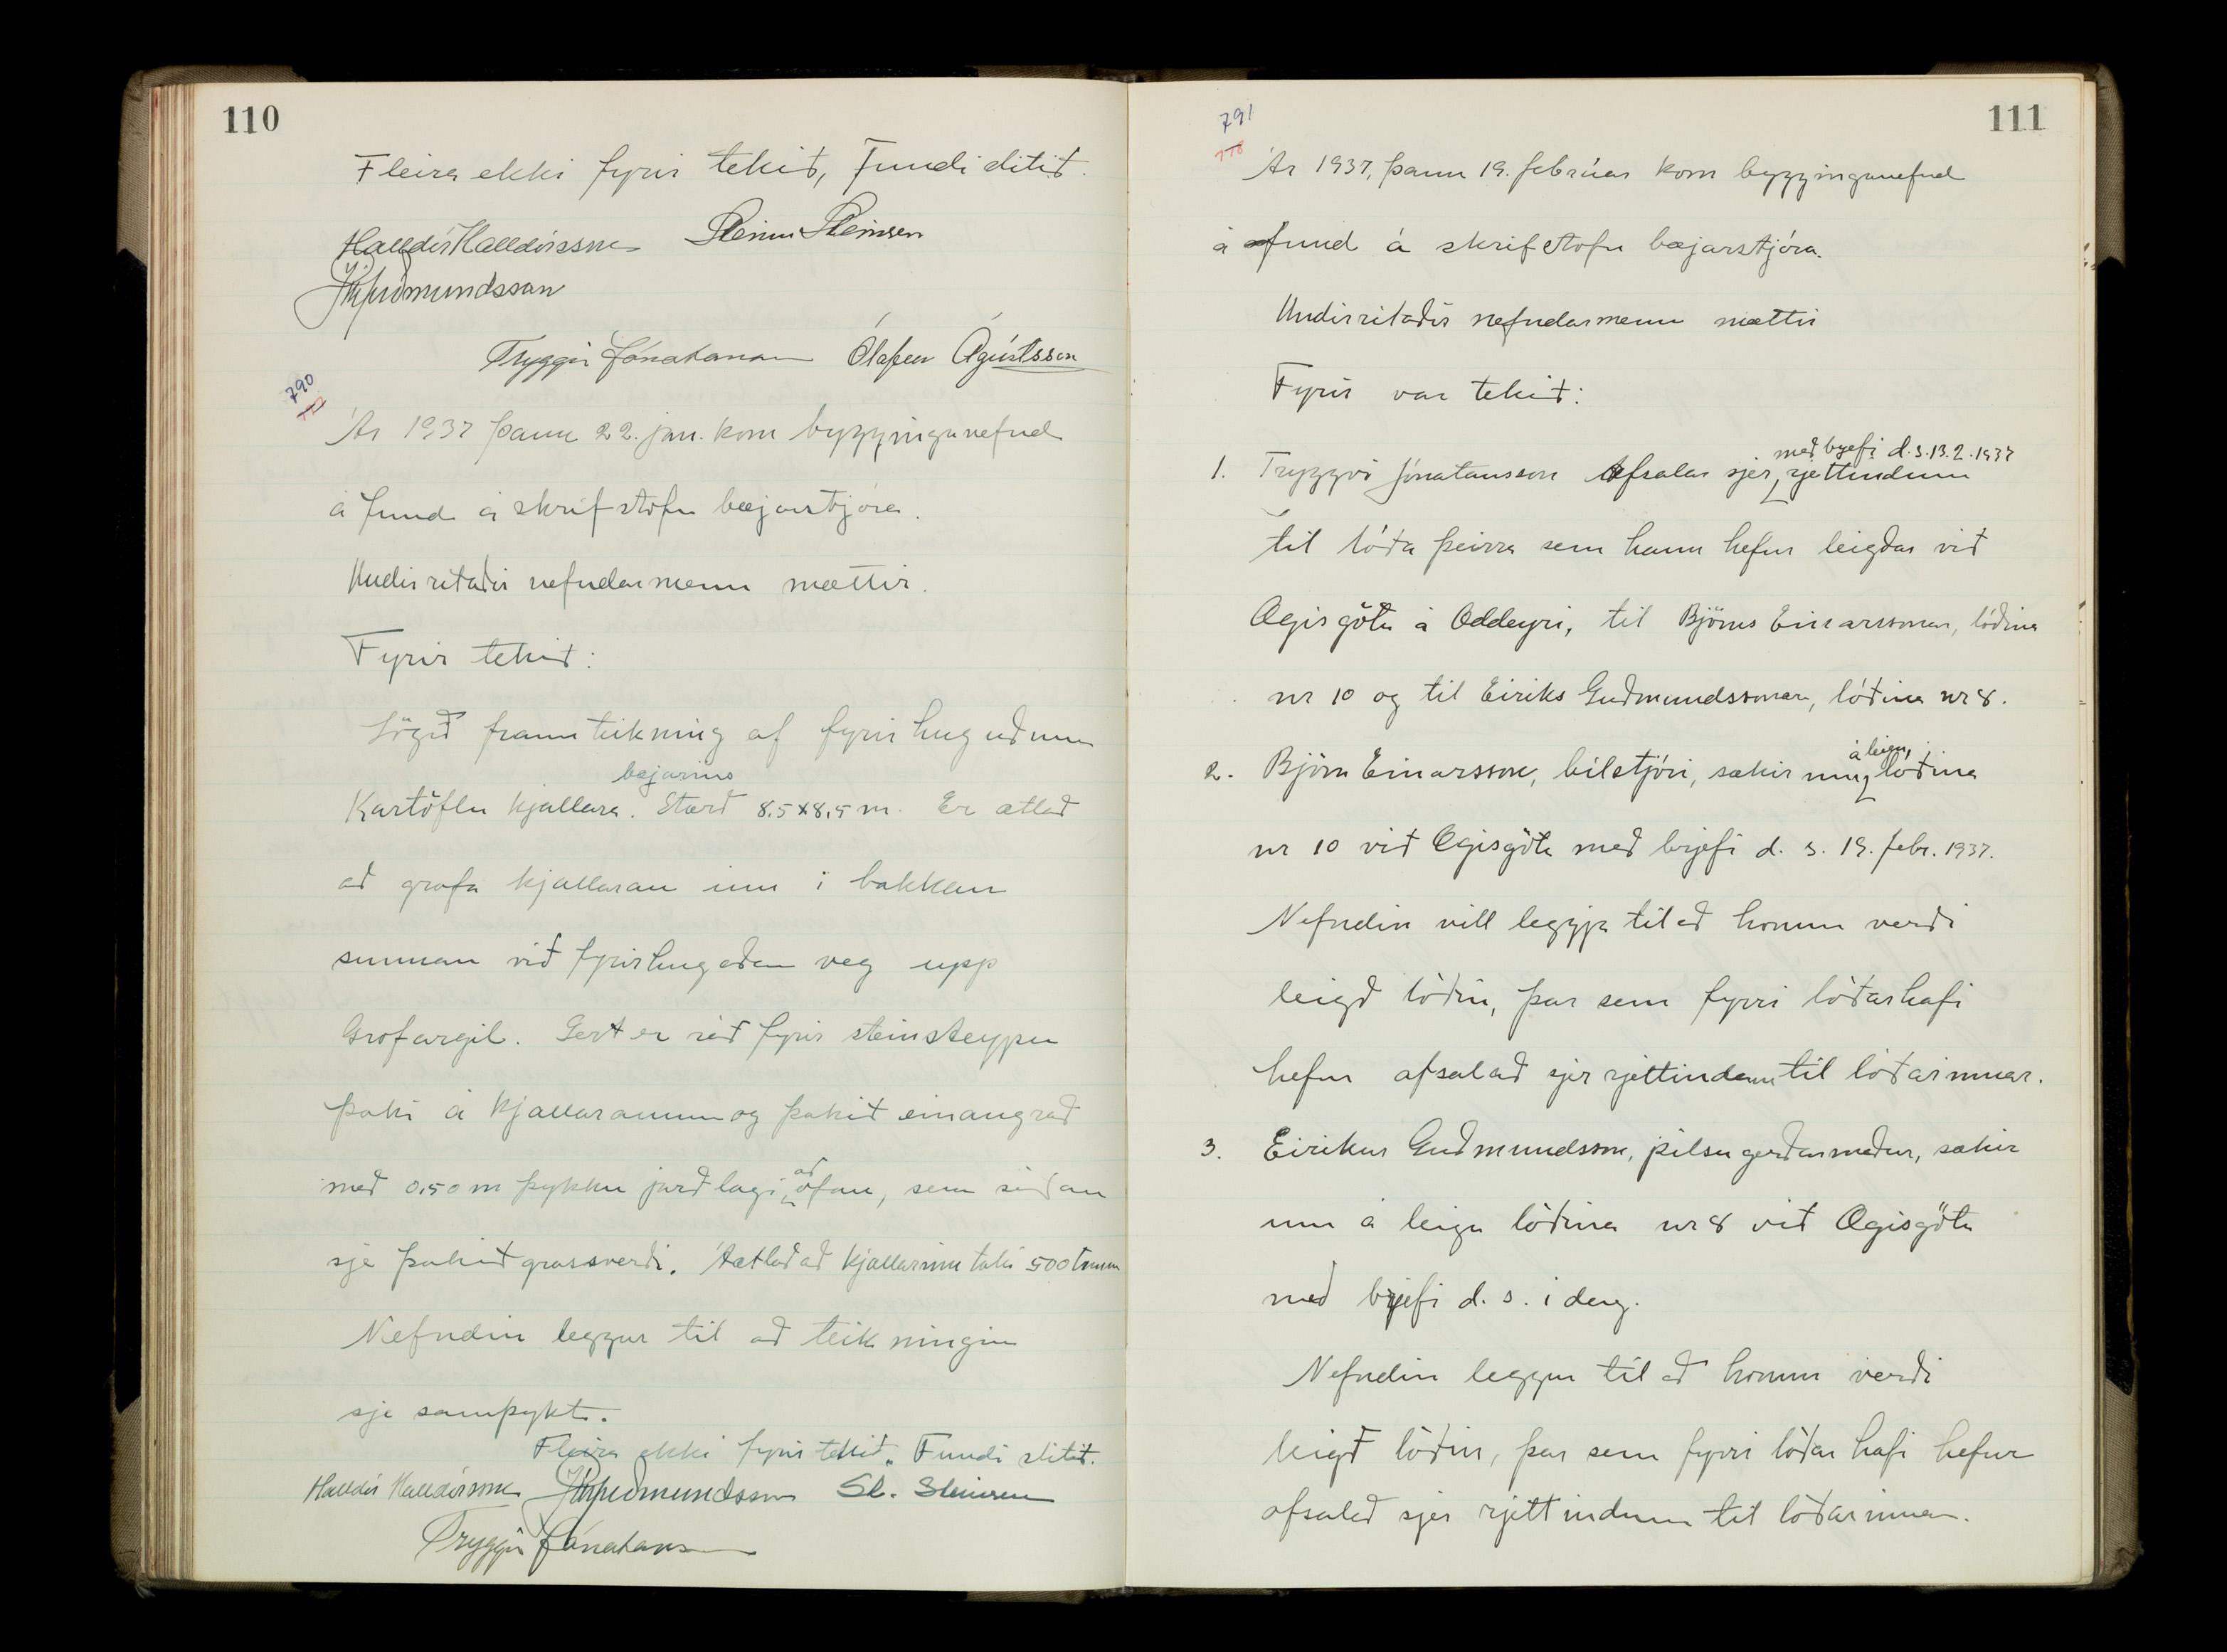 110
Fleira ekki fyrir tekið, Fundi slitið.
Halldór Halldórsson Steinn Steinsen
Guðmundsson
Tryggvi Jónatansson Ólafur Ágústsson
790
Ár 1937 þann 22. jan. kom bygginganefnd
á fund á skrifstofu bæjarstjóra.
Undirritaðir nefndarmenn mættir.
Fyrir tekið:
Lögð fram teikning af fyrirhuguðum
bæjarins
Kartöflu kjallara. Stærð 8.5x8,5 m. Er ætlað
að grafa kjallaran inn í bakkan
sunnan við fyrirhugaðan veg upp
Grófargil. Gert er ráð fyrir steinsteypu
þaki á kjallaranum og þakið einangrað
með 0,50 m þykku jarðlagi að ofan, sem síðan
sje þakið grassverði. Áætlað að kjallarinn taki 500 tunnur
Nefndin leggur til að teikningin
sje samþykt.
Fleira ekki fyrir tekið. Fundi slitið.
Halldór Halldórsson Guðmundsson St. Steinsen
Tryggvi Jónatansson
111
791
Ár 1937, þann 19. febrúar kom bygginganefnd
á fund á skrifstofu bæjarstjóra.
Undirritaðir nefndarmenn mættir
Fyrir var tekið:
með brjefi d.s. 13.2.1937
1. Tryggvi Jónatansson Afsalar sjer, rjettindum
til lóða þeirra sem hann hefur leigðar við
Ægisgötu á Oddeyri, til Björns Einarssonar, lóðina
nr 10 og til Eiriks Guðmundssonar, lóðina nr 8.
2. Björn Einarsson, bílstjóri, sækir um á leigu, lóðina
nr 10 við Ægisgötu með brjefi d. s. 19. febr. 1937.
Nefndin vill leggja til að honum verði
leigð lóðin, þar sem fyrri lóðarhafi
hefur afsalað sjer rjettindum til lóðarinnar.
3. Eirikur Guðmundsson, pilsugerðarmaður, sækir
um á leigu lóðina nr 8 við Ægisgötu
með brjefi d. s. í dag.
Nefndin leggur til að honum verði
leigð lóðin, þar sem fyrri lóðar hafi hefur
afsalað sjer rjettindum til lóðarinnar.